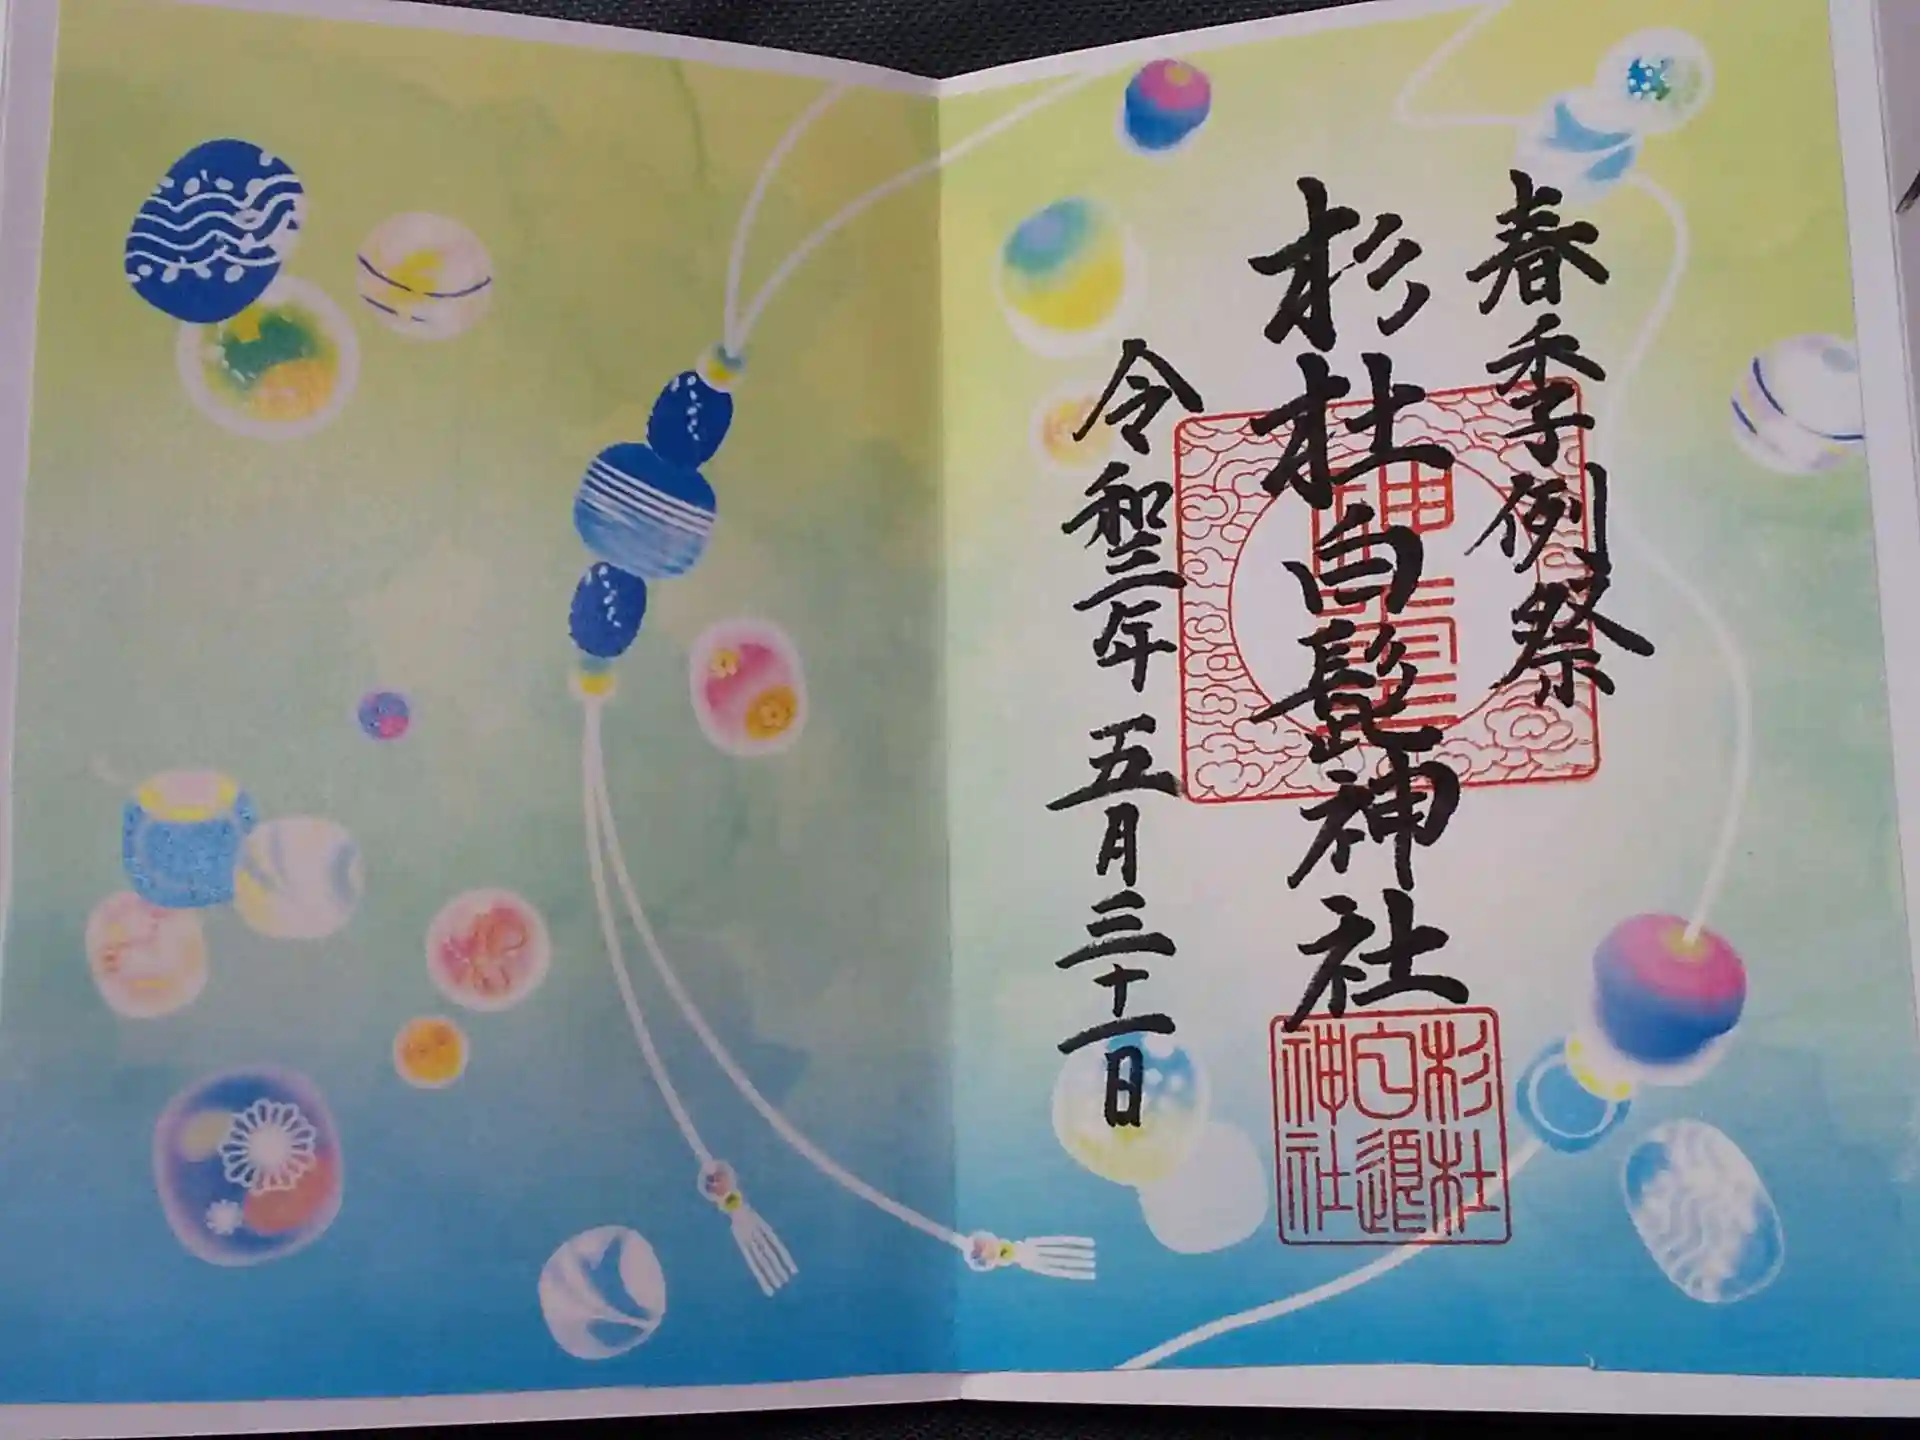 春季例祭
杉杜白髭神社
令和三年 五月三十一日
杉杜
白
神社